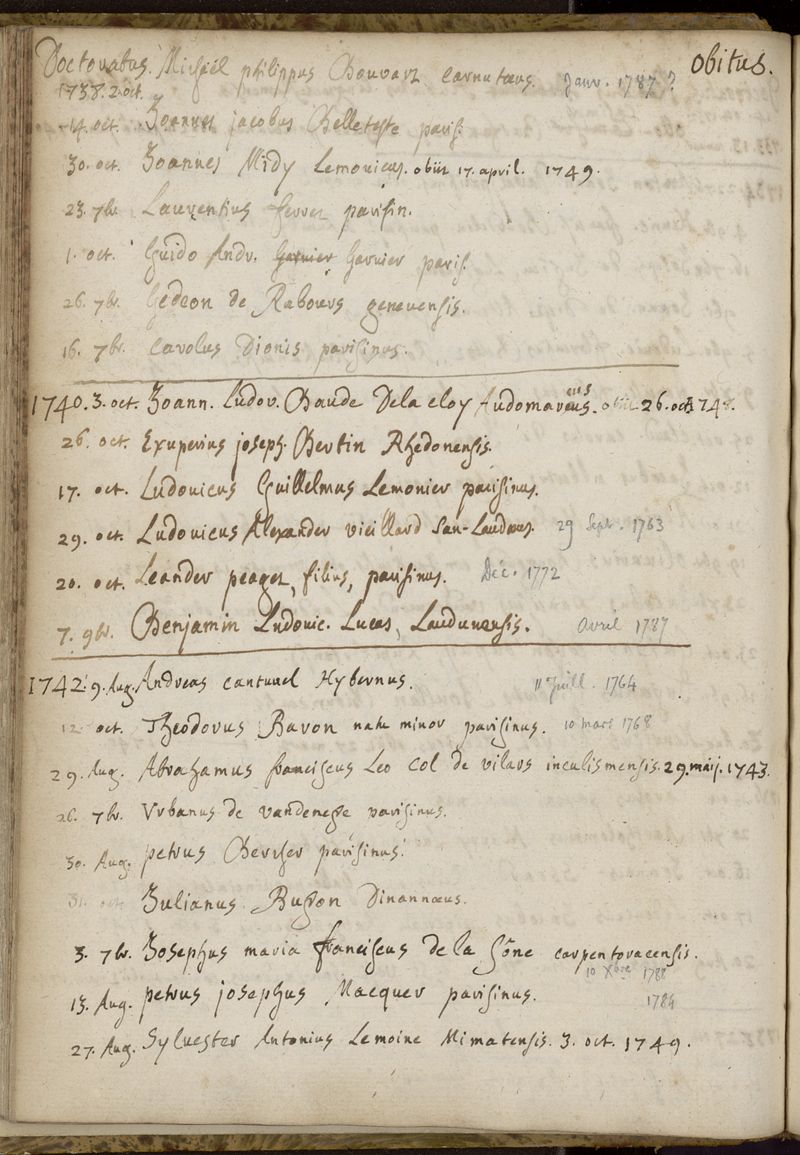 Doctoratus. Michaël philippus Bouvart Carnutæus. Janv. 1787? obitus.
1738. 2. oct.
14. oct. Joannes jacobus Belleteste paris.
30. oct. Joannes Midy Lemovicus. obiit 17. april. 1749.
23. 7br. Laurentius ferret parisin.
1. oct. Guido Andr. Garnier Garnier paris.
26. 7br. Gedeon de Rabours genevensis.
16. 7br. Carolus Dionis parisinus.
1740. 3. oct. Joann. Ludov. Baude Dela cloy Audomareus. eus obiit 26. oct. 1748.
26. oct. Exuperius joseph. Bertin Rhedonensis.
17. oct. Ludovicus Guillelmus Lemonier parisinus.
29. oct. Ludovicus Alexander vieillard San-Laudæus. 29 Sept. 1763
20. oct. Leander peaget, filius, parisinus. Déc. 1772
7. 9br. Benjamin Ludovic. Lucas, Laudunensis. Avril 1787
1742. 9. Aug. Andreas cantwel Hybernus. 11 Juill. 1764
12. oct. Theodorus Baron natu minor parisinus. 10 mars 1768
29. Aug. Abrahamus franciscus Leo Col de vilars inculismensis. 29. maij. 1743.
26. 7br. Urbanus de vandenesse parisinus.
30. Aug. petrus Bercher parisinus.
31. oct. Julianus Busson Dinannæus.
3. 7br. Josephus maria franciscus de la Sône carpentoracensis.
10 Xbre 1788
13. Aug. petrus josephus Macquer parisinus. 1784
27. Aug. Sylvester Antonius Lemoine Mimatensis. 3. oct. 1749.